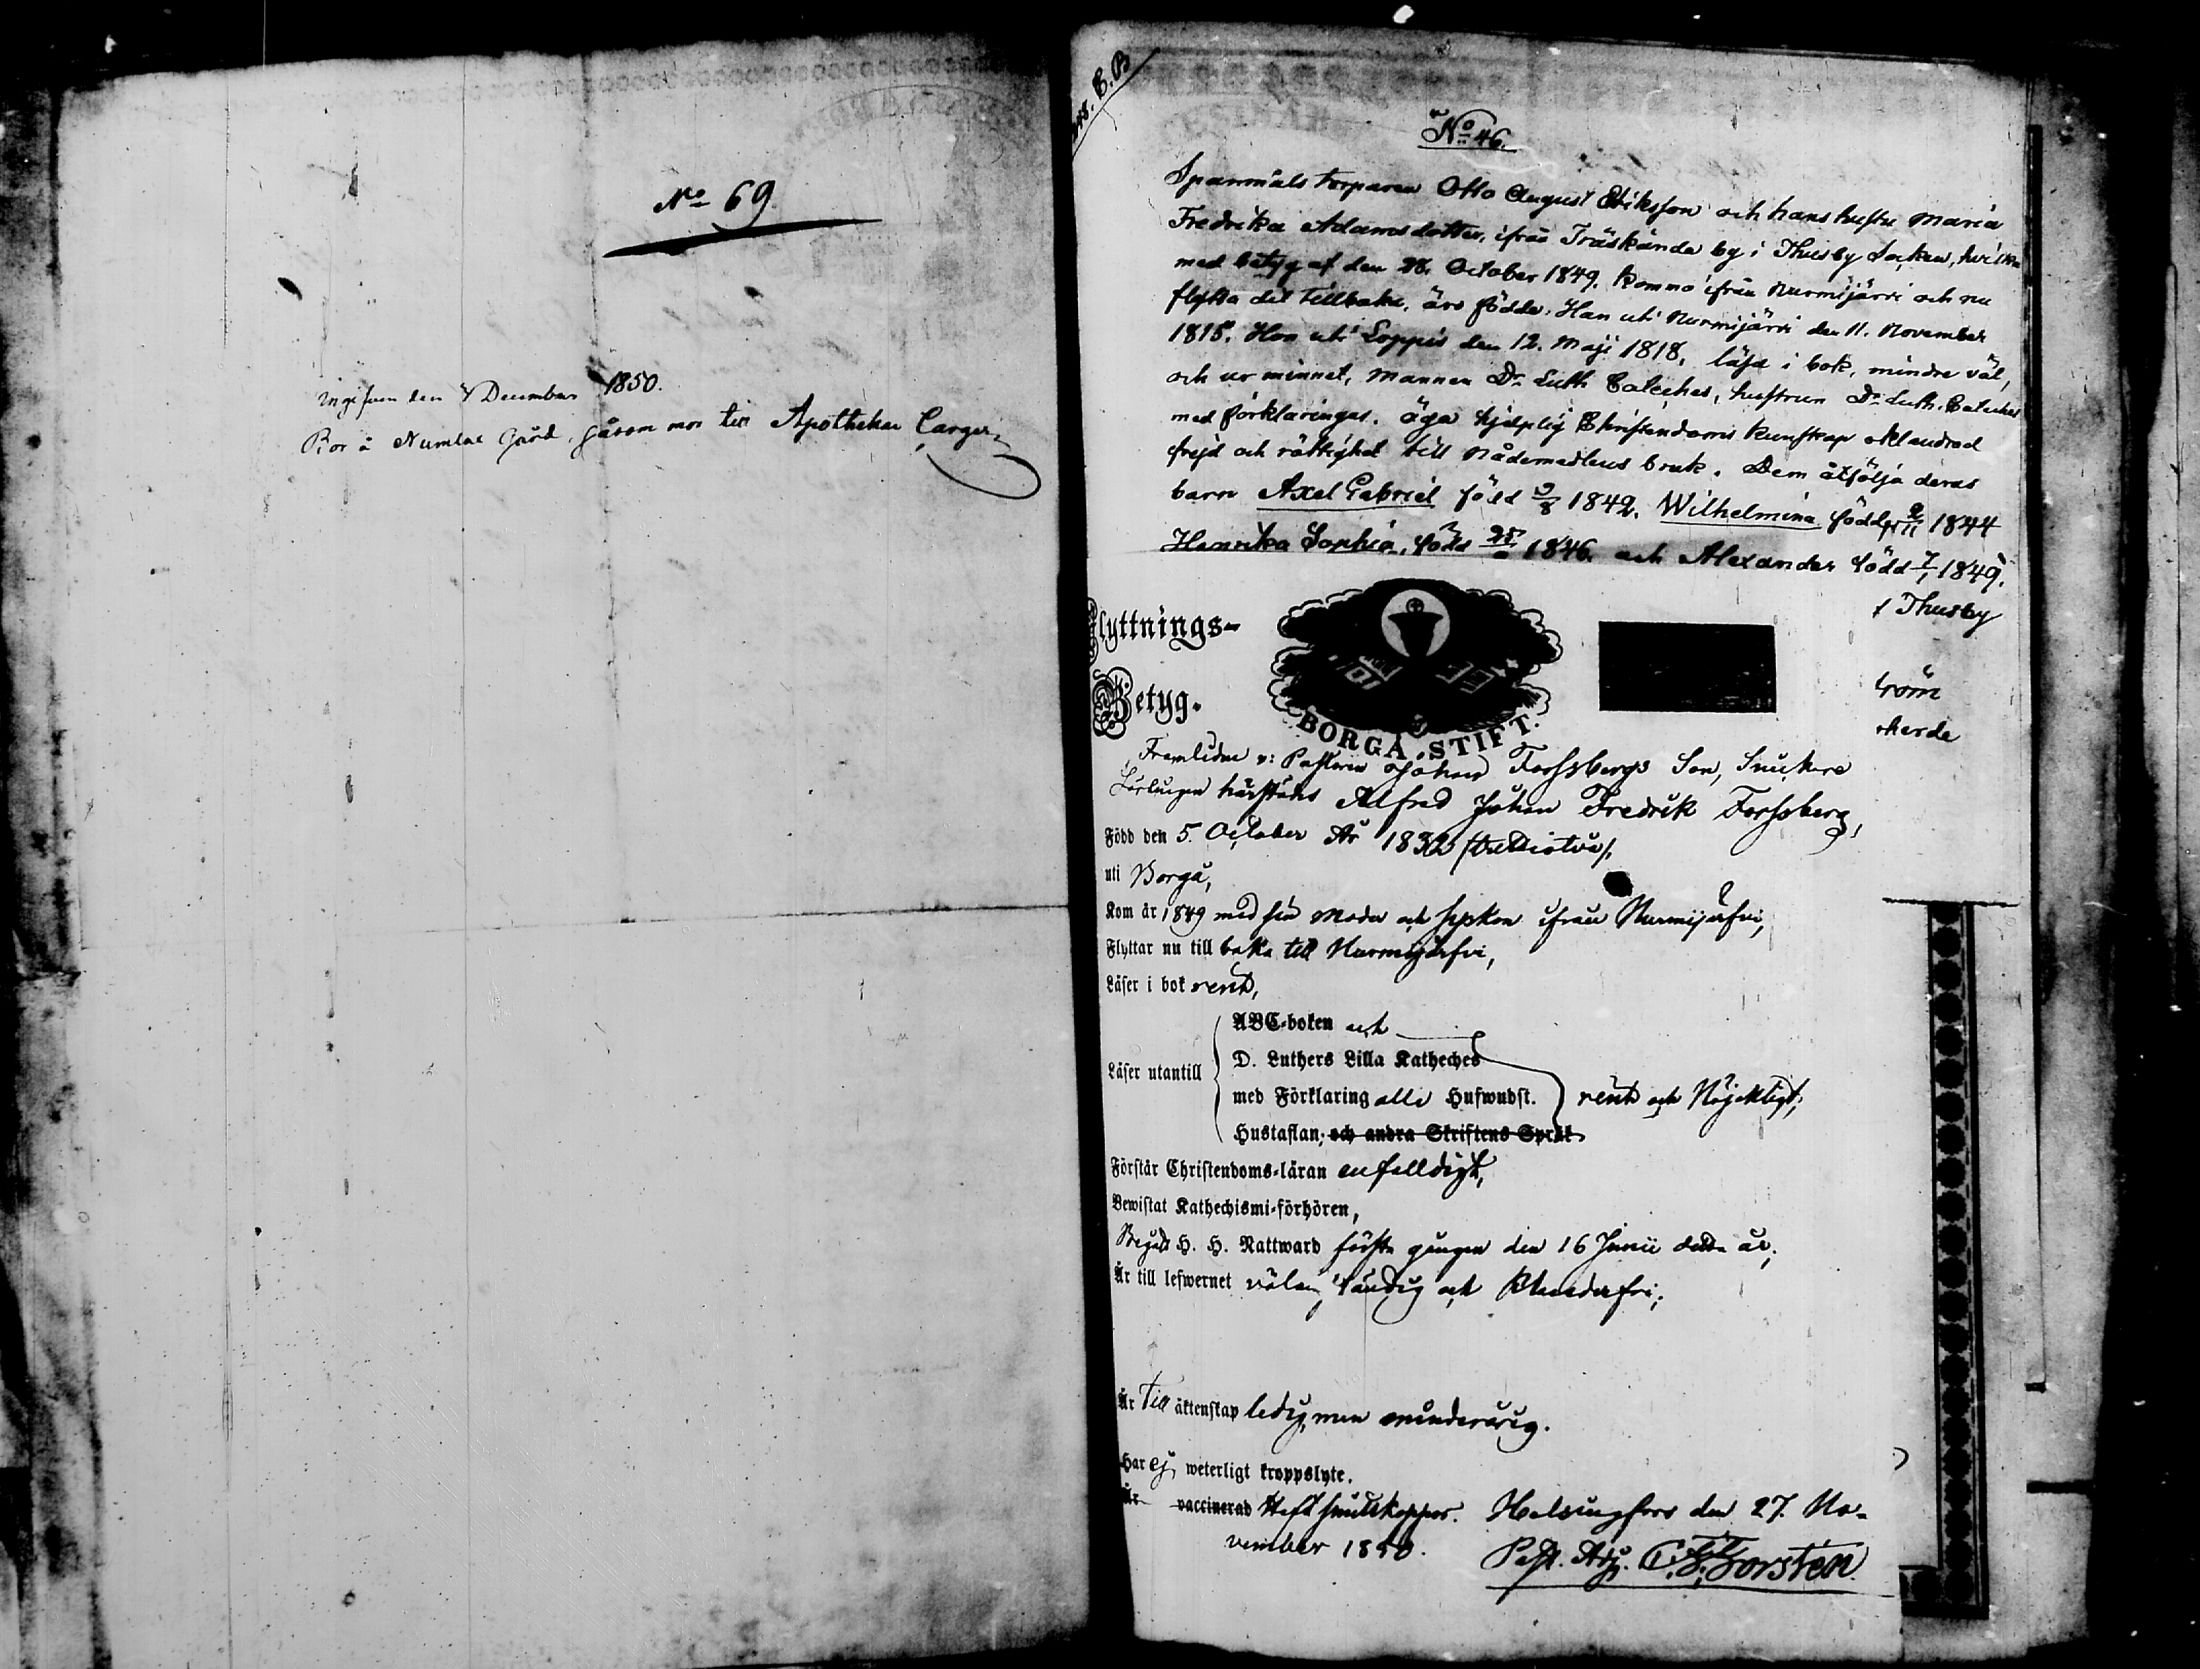 No 69
Ingifven den 4 December 1850.
Bor å Numlax Gård, såsom mor till Apothekar Carger
E. B
No 46.
Spanmåls torparen Otto August Eriksson och hans hustru Maria
Fredrika Adamsdotter, ifrån Träskända by i Thusby Socken, hvilka
med betyg af den 28. October 1849. kommo ifrån Nurmijärvi och nu
flytta dit tillbaka, äro födde, Han uti Nurmijärvi den 11. November
1815. Hon uti Loppis den 12. Maji 1818, läsa i bok, mindre väl,
och ur minnet, mannen Dr Luth Cateches, hustrun Dr Luth. Cateches
med förklaringar. äga hjelplig Christendoms kunskap oklandrad
frejd och rättighet till Nådemedlens bruk. Dem åtfölja deras
barn Axel Gabriel född 9/8 1842. Wilhelmina född 2/11 1844
Henrika Sophia, född 25/ 1846. och Alexander född 7/1 1849.
i Thusby
Flyttnings-
Betyg.
BORGÅ STIFT.
tröm
kherde
Framlidne v: Pastoren Johan Forssbergs Son, Snickare
Lärlingen härstädes Alfred Johan Fredrik Forssberg,
Född den 5. October År 1832
uti Borgå,
Kom år 1849 med sin Moder och syskon ifrån Nurmijärfvi,
Flyttar nu till baka till Nurmijärfvi,
Läser i bok rent,
Läser utantill
ABC-boken och
D. Luthers Lilla Katheches
med Förklaring alla Hufwudst.
Hustaflan; och andra Skriftens Språk
rent och Nöjaktigt;
Förstår Christendoms-läran enfalldigt,
Bewistat Kathechismi-förhören,
Begått H. H. Nattward första gången den 16 Junii detta år;
Är till lefwernet ständig och klanderfri;
Är till äktenskap ledig, men minderårig.
Har ej weterligt kroppslyte.
Är vaccinerad Haft smittkoppor. Helsingfors den 27. No-
vember 1850.
Past. Adj. C. F. Forstén